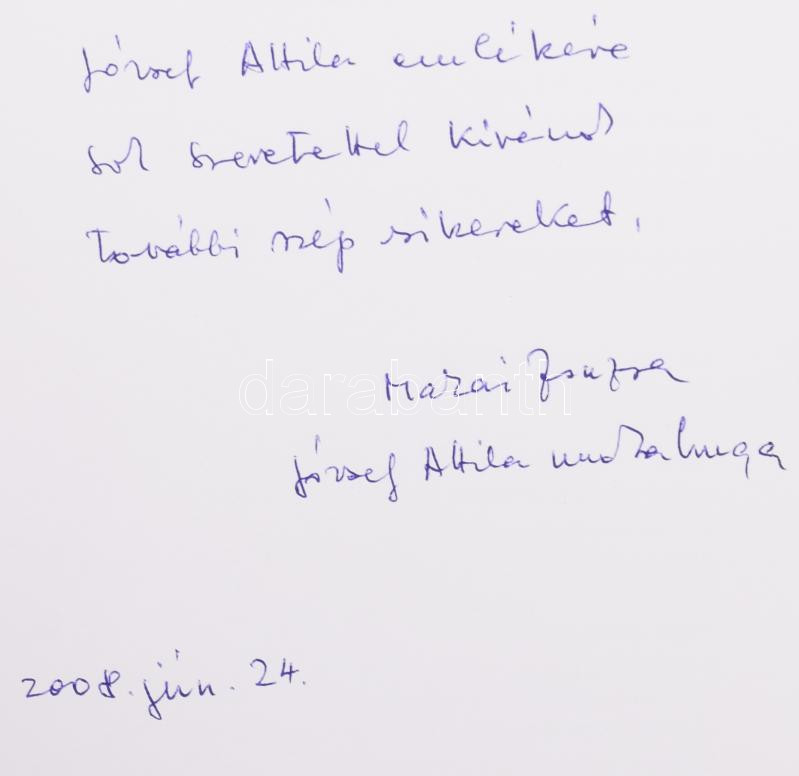 József Attila emlékére
sok szeretettel kívánok
további szép sikereket.
Makai Zsuzsa
József Attila unokahuga
2008. jún. 24.
darabanth